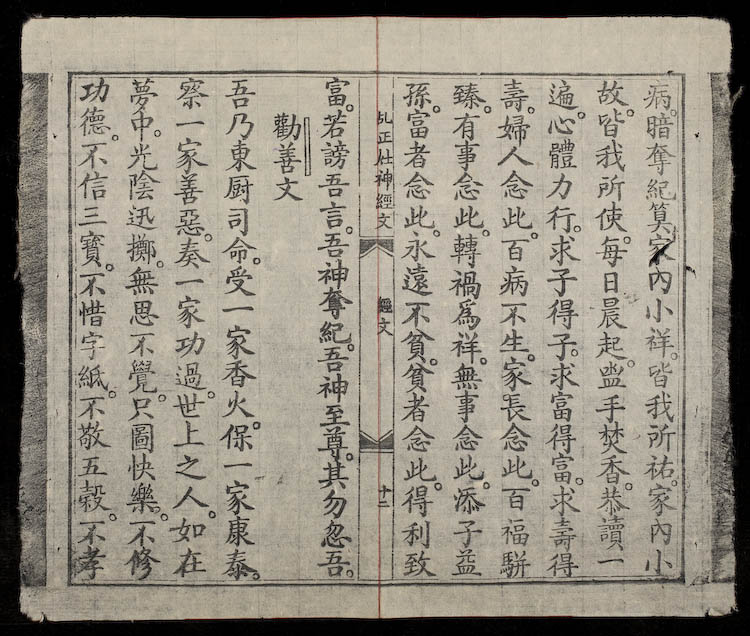 病。暗奪紀算。家內小祥。皆我所祐。家內小
故。皆我所使。每日晨起。盥手焚香。恭讀一
遍。心體力行。求子得子。求富得富。求壽得
壽。婦人念此。百病不生。家長念此。百福駢
臻。有事念此。轉禍爲祥。無事念此。添子益
孫。富者念此。永遠不貧。貧者念此。得利致
乩正灶神經文 經文 十二
富。若謗吾言。吾神奪紀。吾神至尊。其勿忽吾。
勸善文
吾乃東厨司命。受一家香火。保一家康泰。
察一家善惡。奏一家功過。世上之人。如在
夢中。光陰迅擲。無思不覺。只圖快樂。不修
功德。不信三寶。不惜字紙。不敬五穀。不孝